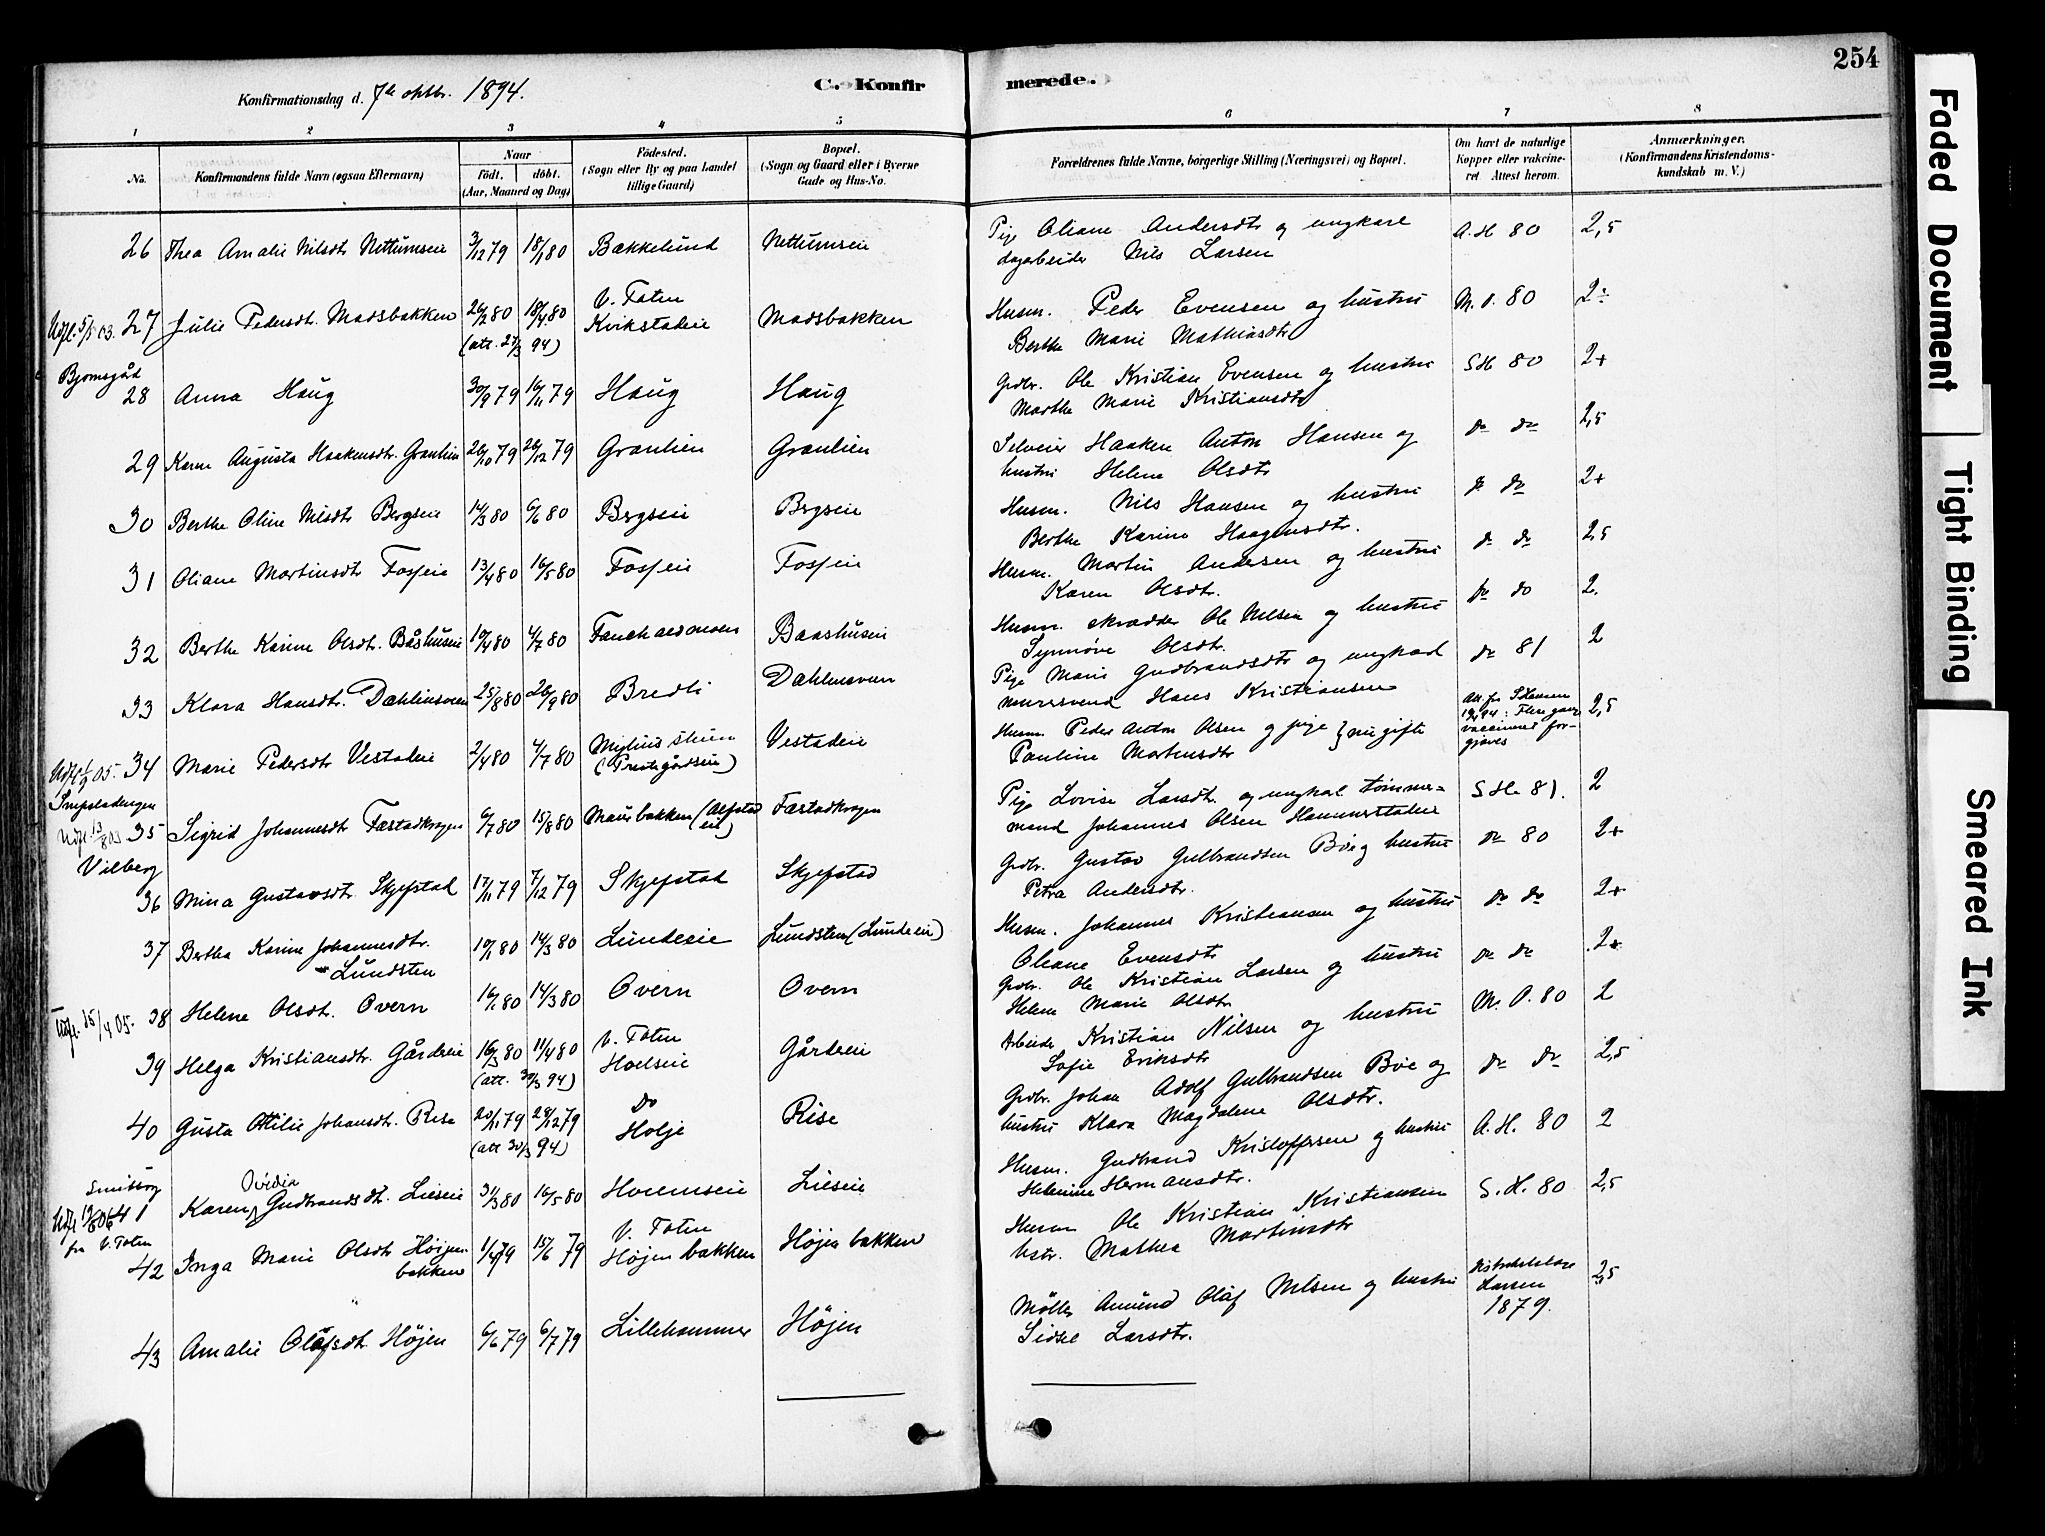 254
Konfirmationsdag d. 7de oktbr. 1894.
C. Konfirmerede.
1 2 3 4 5 6 7 8
No.
Konfirmandens fulde Navn (ogsaa Efternavn)
Naar
födt. döbt.
(Aar, Maaned og Dag)
Födested.
(Sogn eller By og paa Landet
tillige Gaard)
Bopæl.
(Sogn og Gaard eller i Byerne
Gade og Hus-No.
Forældrenes fulde Navne, borgerlige Stilling (Næringsvei) og Bopæl.
Om havt de naturlige
Kopper eller vakcine-
ret. Attest herom.
Anmærkninger.
(Konfirmandens Kristendoms-
kundskab m. V.)
26 Thea Amalie Nilsdtr Nettumseie 3/12 79 18/1 80 Bakkelund Nettumseie
Pige Oliane Andersdtr og ungkarl
dagarbeider Nils Larsen
A. H 80 2,5
Udfl. 5/5 03. 27 Julie Pedersdt. Madsbakken 26/2 80 18/4 80
V. Toten
Kvikstadeie Madsbakken
(att. 27/3 94)
Husm. Peder Evensen og hustru
Berthe Marie Mathiasdtr
M. O. 80 2÷
Bjornsgård
28 Anna Haug 30/9 79 16/11 79 Haug Haug
Grdbr. Ole Kristian Evensen og hustru
Marthe Marie Kristiansdtr
S H 80 2+
29 Karen Augusta Haakensdtr. Granlien 26/10 79 26/12 79 Granlien Granlien
Selveier Haaken Anton Hansen og
hustru Helene Olsdtr
do do 2,5
30 Berthe Oline Nilsdtr Bergseie 14/3 80 6/6 80 Bergseie Bergseie
Husm. Nils Hansen og hustru
Berthe Karine Haagensdtr.
do do 2+
31 Oliane Martinsdtr Fosseie 13/4 80 16/5 80 Fosseie Fosseie
Husm. Martin Andersen og hustru
Karen Olsdtr.
do do 2,5
32 Berthe Karine Olsdtr. Båshuseie 10/4 80 4/7 80 Baashuseie
Husm. skrædder Ole Nilsen og hustru
Synnøve Olsdtr.
do do 2.
33 Klara Hansdtr. Dæhlinsveen 25/8 80 26/9 80 Bredli Dæhlinsveen
Pige Marie Gudbrandsdtr og ungkarl
murersvend Hans Kristiansen
do 81 2
Udfl 1/9 05. 34 Marie Pedersdtr Vestadeie 2/4 80 4/7 80
(Prestegårdseie) Vestadeie
Husm. Peder Anton Olsen og pige } nu gifte
Pauline Martinsdtr
Att. fra S Hansen
94: Flere gange
vaccineret for-
gjæves
2,5
Udfl 13/8 03 35 Sigrid Johannesdtr Fæstadkragen 6/7 80 15/8 80 Mausbakken (Alfstad
eie) Fæstadkragen
Vilberg
Pige Lovise Larsdtr. og ungkarl tømmer-
mand Johannes Olsen Hammerstadeie
S H. 81. 2
36 Mina Gustavsdtr. Skjefstad 17/11 79 7/12 79 Skjefstad Skjefstad
Grdbr. Gustav Gulbrandsen Bøe og hustru
Petra Andersdtr.
do 80 2+
37 Bertha Karine Johannesdtr.
Lundsten 10/1 80 14/3 80 Lundeeie Lundsten (Lundeeie)
Husm. Johannes Kristiansen og hustru
Oleane Evensdtr
do do 2+
Udfl. 15/4 05. 38 Helene Olsdtr. Overn 16/1 80 14/3 80 Overn Overn
Grdbr. Ole Kristian Larsen og hustru
Helene Marie Olsdtr
do do 2+
39 Helga Kristiansdtr. Gårdseie 16/3 80 11/4 80
V. Toten
Hoelseie Gårdseie
(att. 30/3 94)
Arbeider Kristian Nilsen og hustru
Sofie Eriksdtr
M. O. 80 2
40 Gusta Otilie Johansdtr. Rise 20/11 79 28/12 79
Do
Holje Rise
(att 30/3 94)
Grdbr. Johan Adolf Gulbrandsen Bøe og
hustru Klara Magdalene Olsdtr.
do do 2,5
Smeborg
Udfl 19/6 06 41 Karen Ovidia Gudbrandsdt. Lieseie 31/3 80 16/5 80 Hveemseie Lieseie
Husm. Gudbrand Kristoffersen og hustru
Helmine Hermansdtr.
A. H. 80 2
fra V. Toten
42 Inga Marie Olsdtr Höijen-
bakken 1/4 79 15/6 79
V. Toten
Höjenbakken Højenbakken
Husm Ole Kristian Kristiansen
hstr. Mathea Martinsdtr
S. H. 80 2,5
43 Amalie Olafsdtr Höjen 6/6 79 6/7 79 Lillehammer Højen
Møller Amund Olaf Nilsen og hustru
Sidsel Larsdtr.
Distriktslæge
Larsen
1879.
2,5
Faded Document
Tight Binding
Smeared Ink